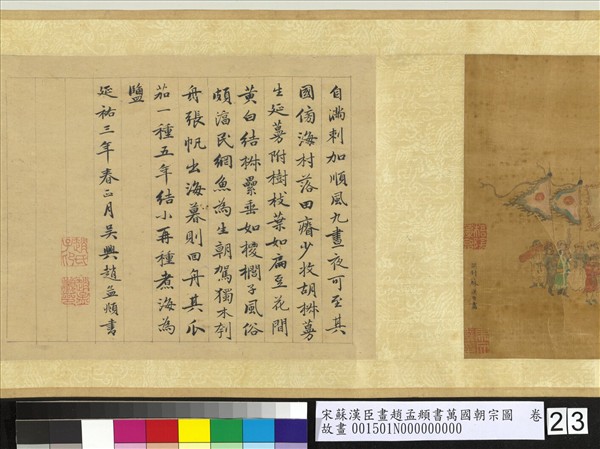 自滿剌加順風九晝夜可至其
國傍海村落田瘠少收胡椒蔓
生延蔓附樹枝葉如扁豆花間
黃白結椒纍垂如椶櫚子風俗
頗淳民網魚為生朝駕獨木刳
舟張帆出海暮則回舟其瓜
茄一種五年結小再種煮海為
鹽
延祐三年春正月吳興趙孟頫書
宋蘇漢臣畫趙孟頫書萬國朝宗圖　卷
故畫 001501N000000000
23